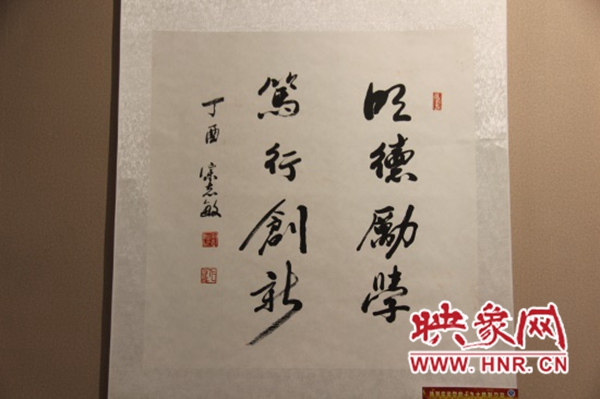 明德勵學
篤行創新
丁酉 宋志敏
映象网
WWW.HNR.CN